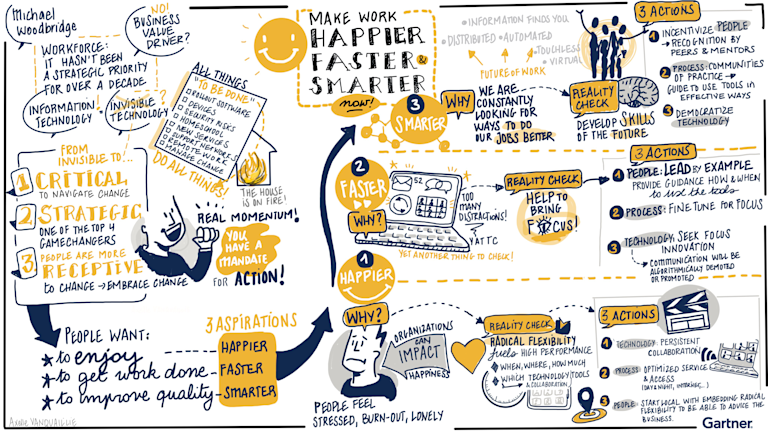 Michael
Woodbridge
NO!
BUSINESS
VALUE
DRIVER?
WORKFORCE:
IT HASN'T BEEN
A STRATEGIC PRIORITY
FOR OVER A DECADE
INFORMATION
TECHNOLOGY
INVISIBLE
TECHNOLOGY?
ALL THINGS
"TO BE DONE"
ROLLOUT SOFTWARE
DEVICES
SECURITY RISKS
HOMESCHOOL
NEW SERVICES
SUPPORT NETWORKS
REMOTE WORK
MANAGE CHANGE
DO ALL THINGS!
THE HOUSE
IS ON FIRE!
FROM
INVISIBLE TO...
1 CRITICAL
TO NAVIGATE CHANGE
2 STRATEGIC
ONE OF THE TOP 4
GAMECHANGERS
3. PEOPLE ARE MORE
RECEPTIVE
to CHANGE → EMBRACE CHANGE
REAL MOMENTUM!
YOU
HAVE A
MANDATE
FOR ACTION!
PEOPLE WANT:
to enjoy
to get work done
to improve quality
3 ASPIRATIONS
HAPPIER
FASTER
SMARTER
MAKE WORK
HAPPIER
FASTER &
SMARTER
now!
3
SMARTER
WHY
WE ARE
CONSTANTLY
LOOKING FOR
WAYS TO DO
OUR JOBS BETTER
INFORMATION FINDS YOU
DISTRIBUTED
AUTOMATED
TOUCHLESS
VIRTUAL
FUTURE OF WORK
REALITY
CHECK
DEVELOP SKILLS
OF THE FUTURE
3 ACTIONS
1 INCENTIVIZE PEOPLE
→ RECOGNITION BY
PEERS & MENTORS
2 PROCESS: COMMUNITIES
OF PRACTICE →
GUIDE TO USE TOOLS IN
EFFECTIVE WAYS
3 DEMOCRATIZE
TECHNOLOGY
2
FASTER
WHY?
52
TOO
MANY
DISTRACTIONS!
YATTC
YET ANOTHER THING TO CHECK!
REALITY CHECK
HELP TO
BRING
FOCUS!
3 ACTIONS
1 PEOPLE: LEAD BY EXAMPLE
PROVIDE GUIDANCE HOW & WHEN
to use the tools
2 PROCESS: FINE TUNE FOR FOCUS
3 TECHNOLOGY: SEEK FOCUS
INNOVATION
→ COMMUNICATION WILL BE
ALGORITHMICALLY DEMOTED
OR PROMOTED
1
HAPPIER
WHY?
PEOPLE FEEL
STRESSED, BURN-OUT, LONELY
ORGANIZATIONS
CAN
IMPACT
HAPPINESS
REALITY CHECK
RADICAL FLEXIBILITY
fuels HIGH PERFORMANCE
WHEN, WHERE, HOW MUCH
WHICH TECHNOLOGY TOOLS
& COLLABORATION
3 ACTIONS
1 TECHNOLOGY: PERSISTENT
COLLABORATION
2 PROCESS: OPTIMIZED SERVICE
& ACCESS
3 PEOPLE: START LOCAL WITH EMBEDDING RADICAL
FLEXIBILITY TO BE ABLE TO ADVICE THE
BUSINESS.
AXELLE VANQUAILLIE
Gartner